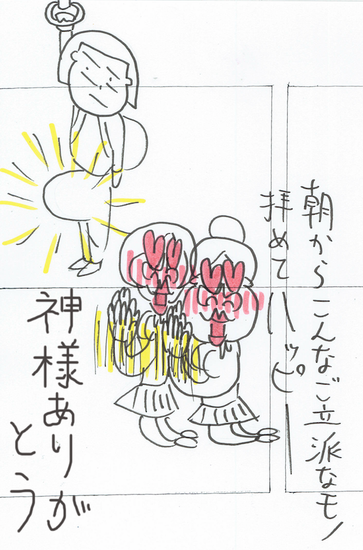 朝からこんなご立派なモノ
拝めてハッピー
神様あり
がとう